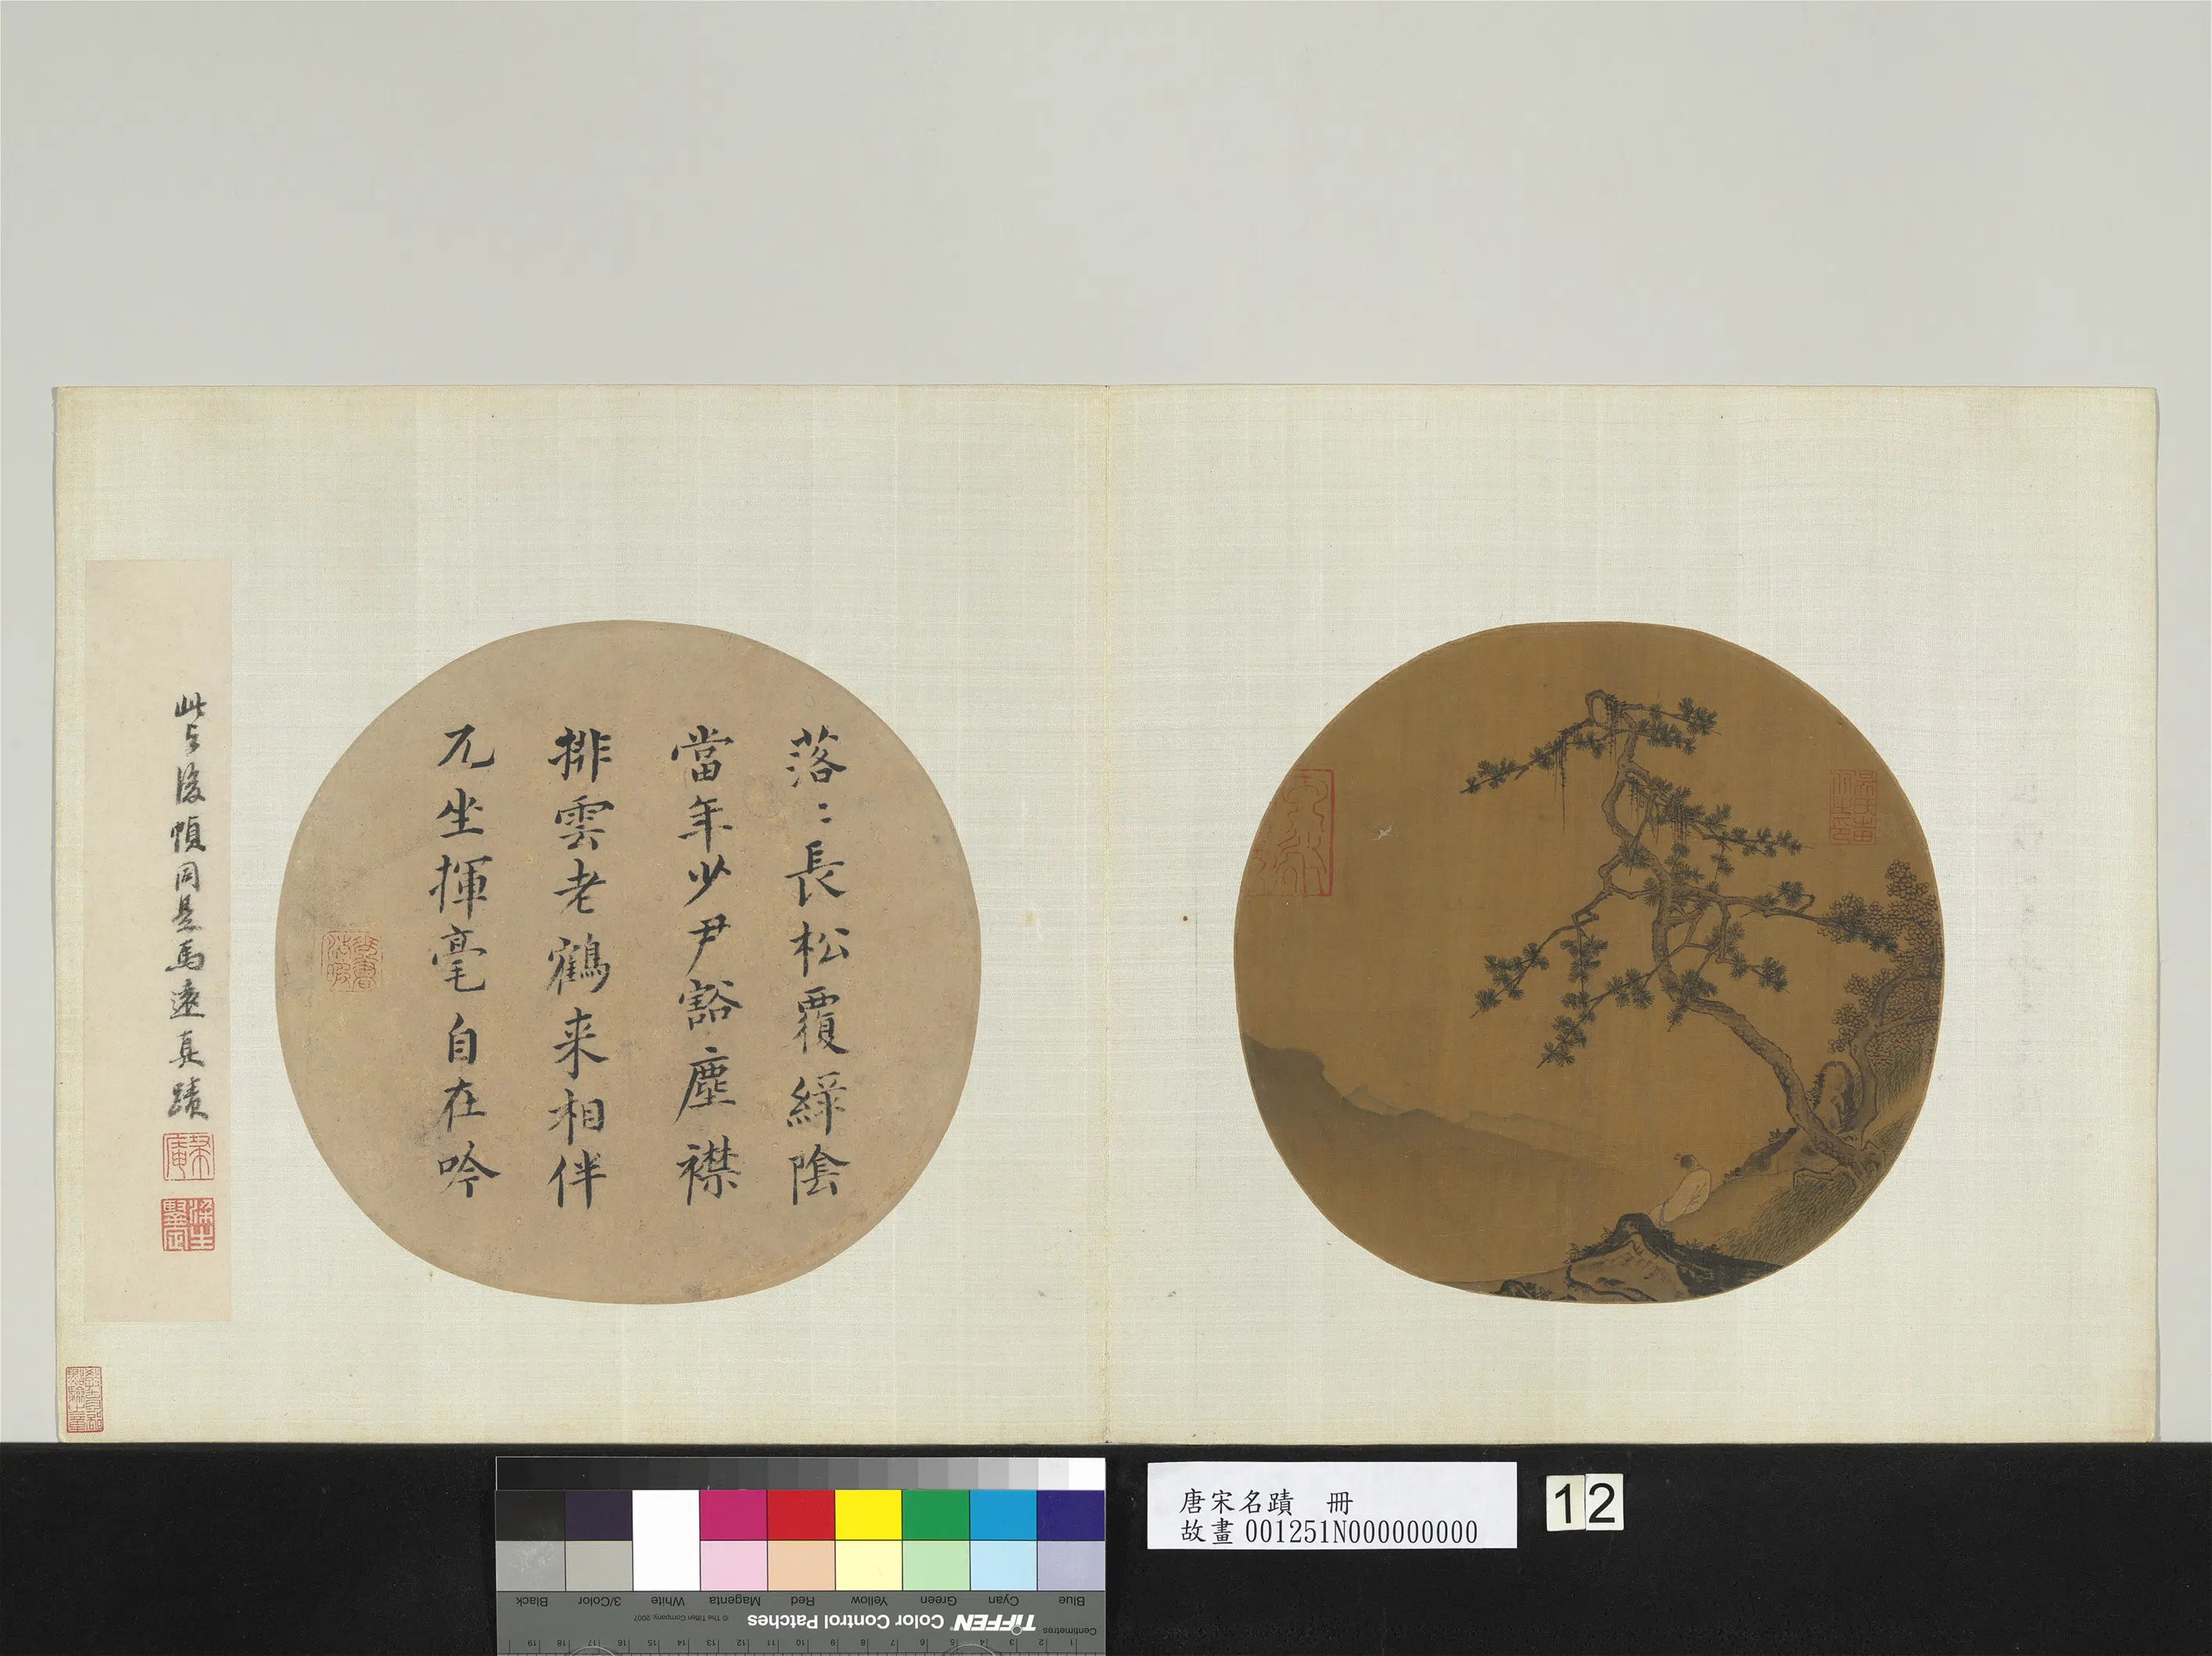 落〻長松覆緑陰
當年少尹豁塵襟
排雲老鶴来相伴
兀坐揮毫自在吟
此與後幀同是馬遠真蹟
唐宋名蹟 冊
故畫 001251N000000000
12
Blue
Cyan
Green
Yellow
Red
Magenta
White
3/Color
Black
TIFFEN Color Control Patches
© The Tiffen Company, 2007
Centimetres
1 2 3 4 5 6 7 8 9 10 11 12 13 14 15 16 17 18 19